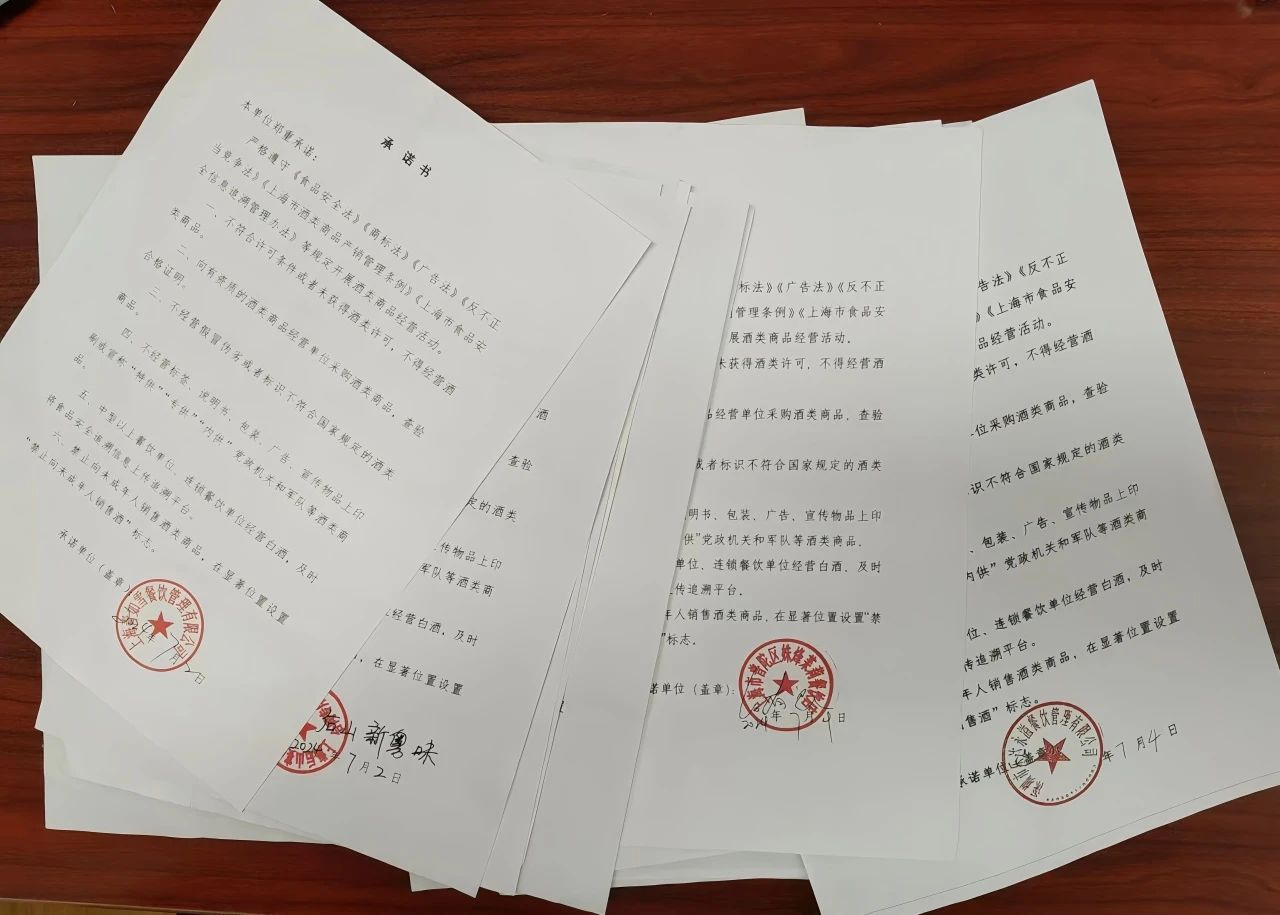 承诺书
本单位郑重承诺：
严格遵守《食品安全法》《商标法》《广告法》《反不正
当竞争法》《上海市酒类商品产销管理条例》《上海市食品安
全信息追溯管理办法》等规定开展酒类商品经营活动。
一、不符合许可条件或者未获得酒类许可，不得经营酒
类商品。
二、向有资质的酒类商品经营单位采购酒类商品，查验
合格证明。
三、不经营假冒伪劣或者标识不符合国家规定的酒类
商品。
四、不经营标签、说明书、包装、广告、宣传物品上印
刷或宣称“特供”“专供”“内供”党政机关和军队等酒类商
品。
五、中型以上餐饮单位、连锁餐饮单位经营白酒，及时
将食品安全追溯信息上传追溯平台。
六、禁止向未成年人销售酒类商品，在显著位置设置
“禁止向未成年人销售酒”标志。
承诺单位（盖章）
如雪餐饮管理有限公司
7月2日
酒
查验
定的酒类
传物品上印
军队等酒类商
经营白酒，及时
，在显著位置设置
新粤味
2024
7月2日
标法》《广告法》《反不正
管理条例》《上海市食品安
展酒类商品经营活动。
未获得酒类许可，不得经营酒
品经营单位采购酒类商品，查验
或者标识不符合国家规定的酒类
明书、包装、广告、宣传物品上印
供”党政机关和军队等酒类商品。
单位、连锁餐饮单位经营白酒，及时
传追溯平台。
年人销售酒类商品，在显著位置设置“禁
”标志。
诺单位（盖章）：
上海市普陀区
年7月
日
告法》《反不正
》《上海市食品安
品经营活动。
类许可，不得经营酒
单位采购酒类商品，查验
识不符合国家规定的酒类
、包装、广告、宣传物品上印
内供”党政机关和军队等酒类商
位、连锁餐饮单位经营白酒，及时
传追溯平台。
年人销售酒类商品，在显著位置设置
售酒”标志。
承诺单位（盖章）
餐饮管理有限公司
年7月4日